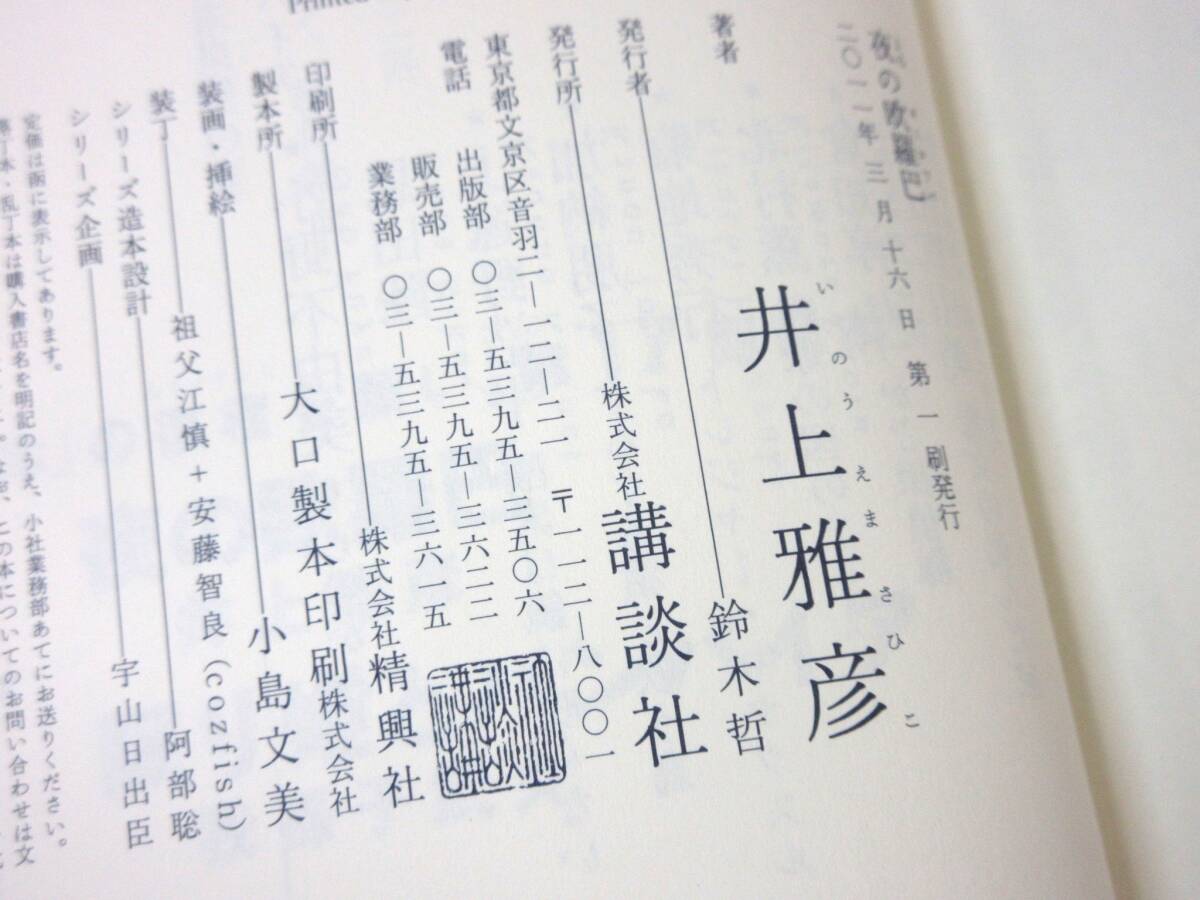 夜の欧羅巴
二〇一一年三月十六日　第一刷発行
著者　井上雅彦
いのうえまさひこ
発行者　鈴木哲
発行所　株式会社講談社
東京都文京区音羽二―一二―二一　〒一一二―八〇〇一
電話　出版部　〇三―五三九五―三五〇六
販売部　〇三―五三九五―三六二二
業務部　〇三―五三九五―三六一五
印刷所　株式会社精興社
製本所　大口製本印刷株式会社
装画・挿絵　小島文美
装丁　祖父江慎＋安藤智良（cozfish）
シリーズ造本設計　阿部聡
シリーズ企画　宇山日出臣
定価は函に表示してあります。
本・乱丁本は購入書店名を明記のうえ、小社業務部あてにお送りください。
なお、この本についてのお問い合わせは文
Printed